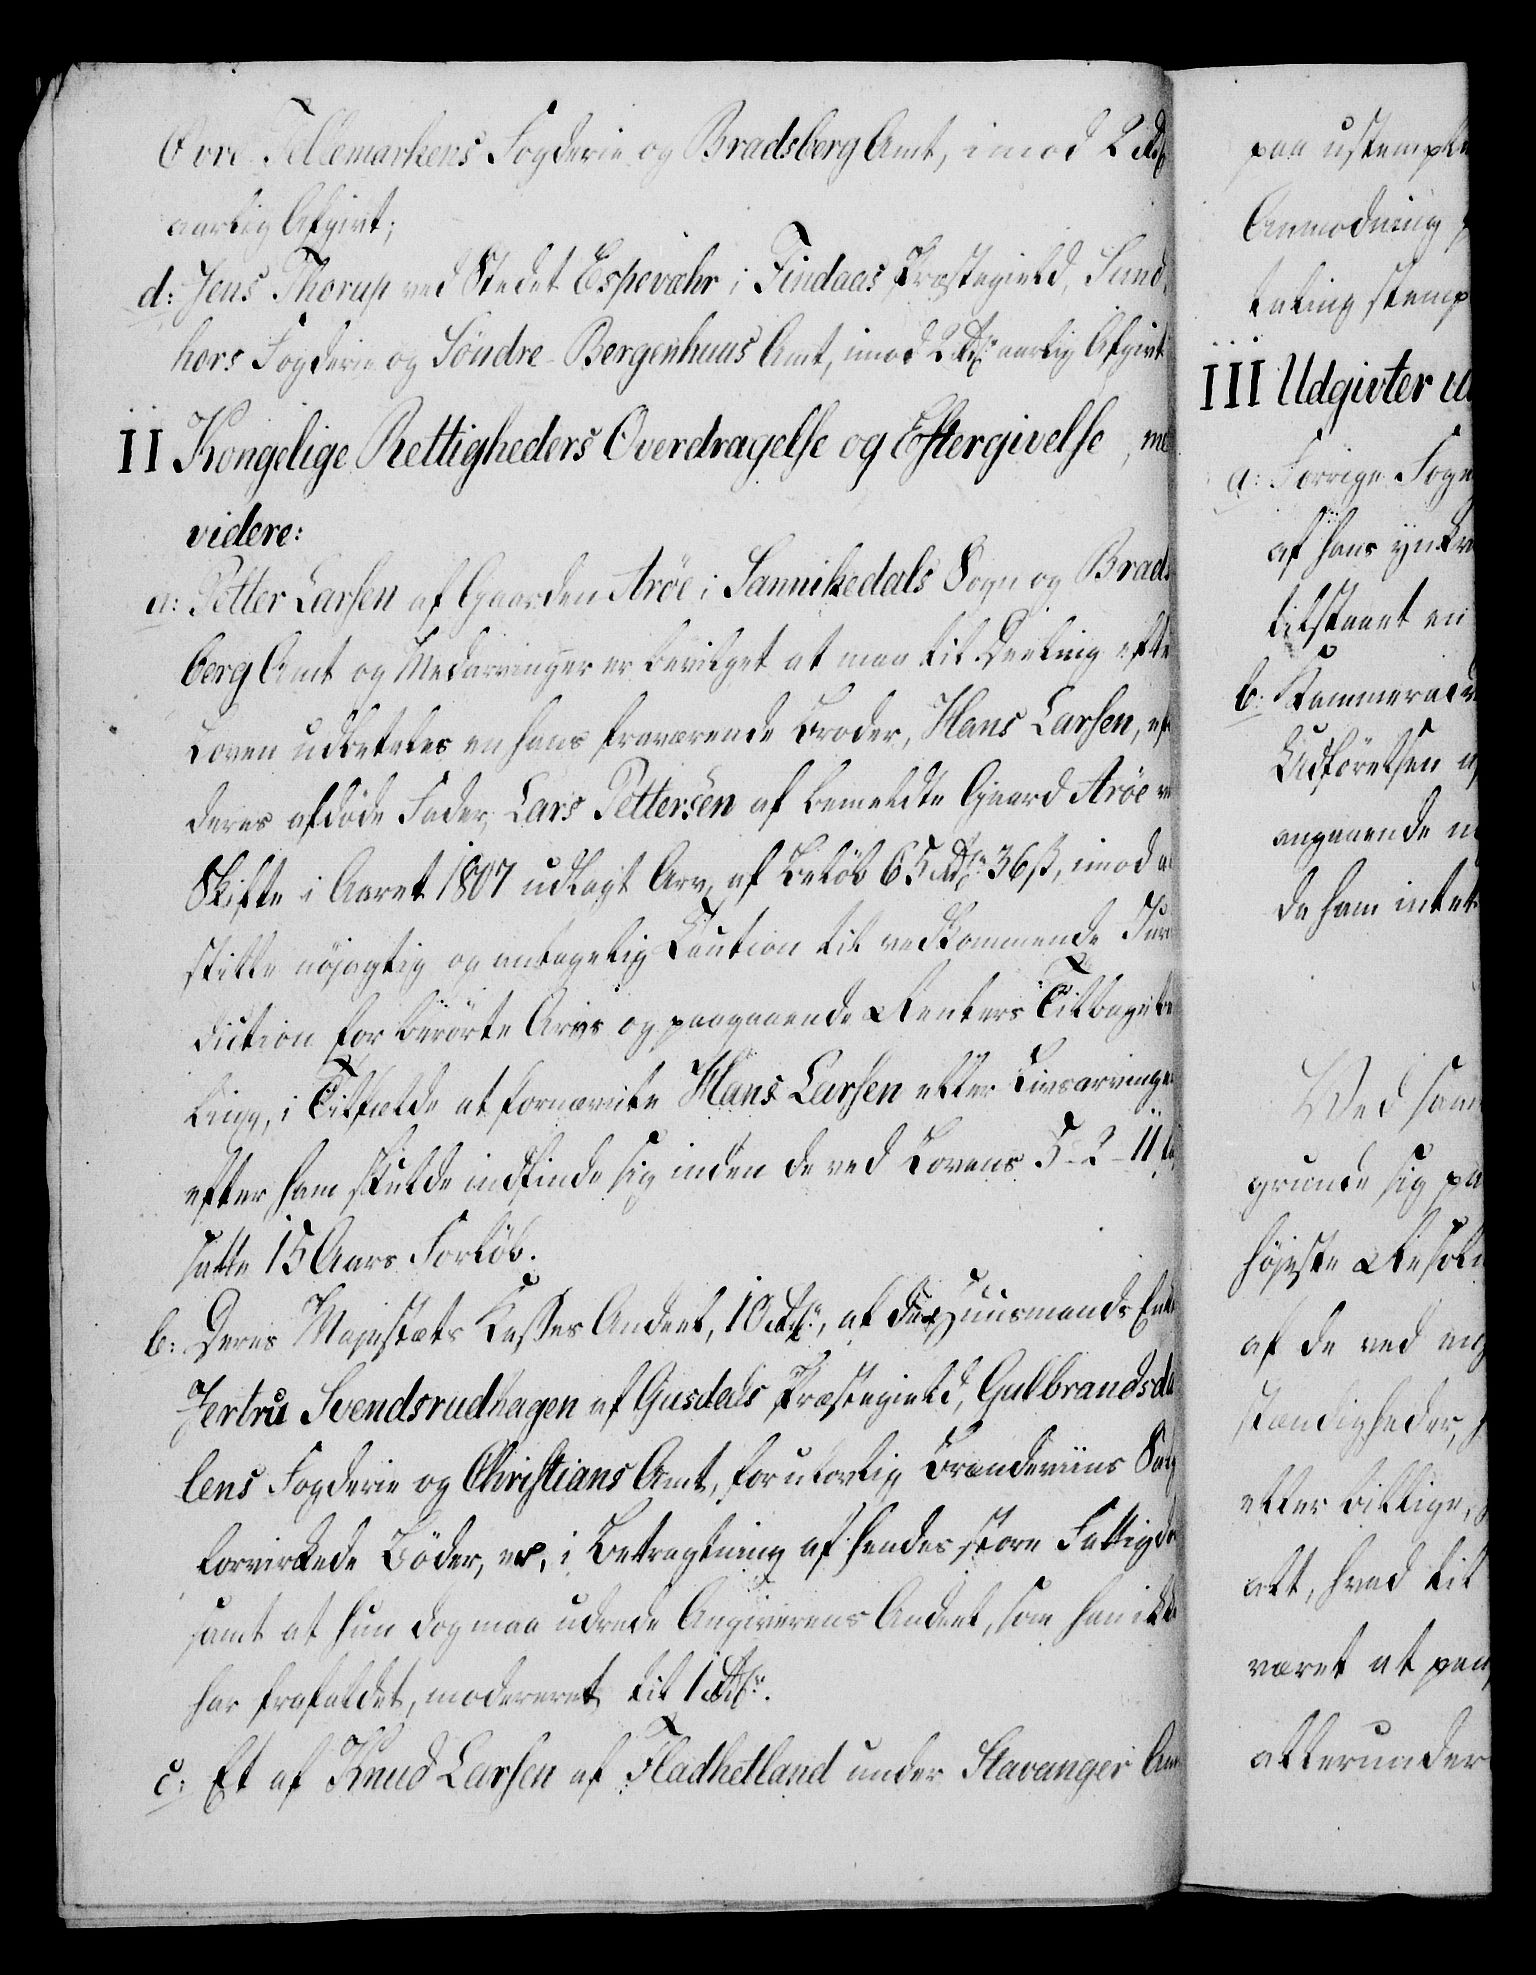 Øvre Tellemarkens Fogderie og Bradsberg Amt, imod 2 Rd
aarlig Afgivt;
d: Jens Thorup ved Stedet Espevæhr i Findaas Præstegield, Sund-
hors Fogderie og Søndre Bergenhuus Amt, imod 2 Rdr aarlig Afgivt
II Kongelige Rettigheders Overdragelse og Eftergivelse, m
videre:
a: Petter Larsen af Gaarden Arøe i Sannikedals Sogn og Brads
berg Amt og Medarvinger er bevilget at maa til Deeling efte
Loven udbetales en hans fraværende Broder, Hans Larsen, ef
deres afdøde Fader, Lars Pettersen af bemeldte Gaard Arøe ve
Skifte i Aaret 1807 udlagt Arv, af Beløb 65 Rdr 36 ß, imod a
stille nöjagtig og antagelig Caution til vedkommende Juris
diction for berørte Arvs og paagaaende Renters Tilbagebeta
ling, i Tilfælde at fornævnte Hans Larsen eller Livsarvinger
efter ham skulde indfinde sig inden de ved Lovens 5-2-11
satte 15 Aars Forløb.
b: Deres Majestæts Kasses Andeel, 10 Rdr, af de Huusmands Enke
Jertru Svendsrudhagen af Gusdals Præstegield, Gulbrandsda
lens Fogderie og Christians Amt, for ulovlig Brændeviins Salg
forvirkede Bøder, er, i Betragtning af hendes store Fattigdo
samt at hun dog maa udrede Angiverens Andeel, som han ikke
har frafaldet, modereret til 1 Rdr.
c: Et af Knud Larsen af Fladhetland under Stavanger Am
paa ustemple
Anmodning
taling stemp
III Udgivter
a: Forrige Fog
af hans ynk
tilstaaet en
b: Kammeraad
Udførelsen a
angaaende
da ham intet
Ved sam
grunde sig paa
höjeste Resol
af de ved
stændigheder,
eller billige,
alt, hvad til
været at
allerunder